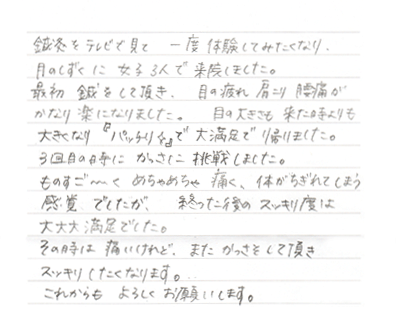 鍼灸をテレビで見て 一度 体験してみたくなり、
月のしずくに 女子3人で 来院しました。
最初 鍼をして頂き、目の疲れ 肩こり 腰痛が
かなり楽になりました。 目の大きさも 来た時よりも
大きくなり『パッチリ』で 大満足で 帰りました。
3回目の時に かっさに 挑戦しました。
ものすご〜く めちゃめちゃ 痛く、体がちぎれてしまう
感覚 でしたが、 終った後の スッキリ度は
大大大満足でした。
その時は 痛いけれど、また かっさをして頂き
スッキリしたくなります。
これからも よろしく お願いします。